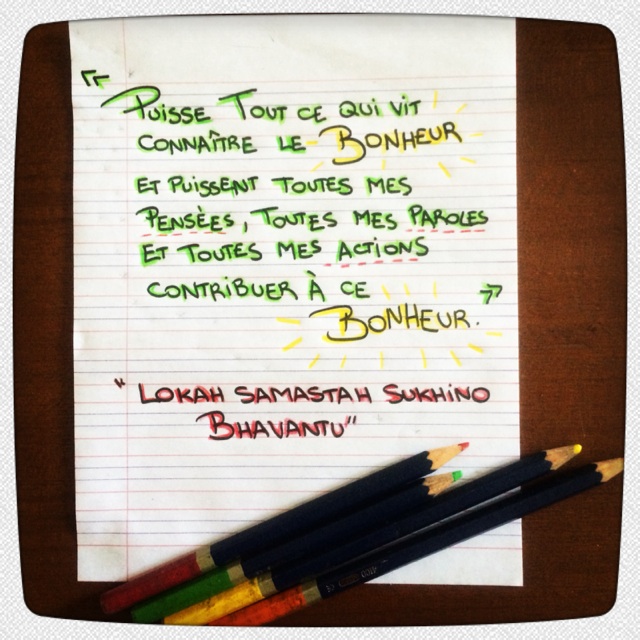 « Puisse Tout ce qui vit
connaître le Bonheur
et puissent toutes mes
Pensées, Toutes mes Paroles
Et toutes mes Actions
contribuer à ce »
Bonheur.
"Lokah Samastah Sukhino
Bhavantu"